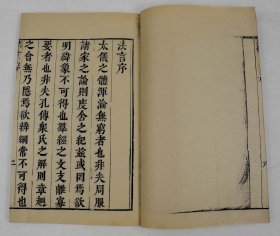 法言序
太儀之體渾淪無窮者也非夫周服
諸家之論則度舍之紀茲或爲欲
明緯象不可得也群經之文支離寡
要者也非夫孔傳衆氏之解則章超
之會無乃隱焉欲辨綱常不可得也